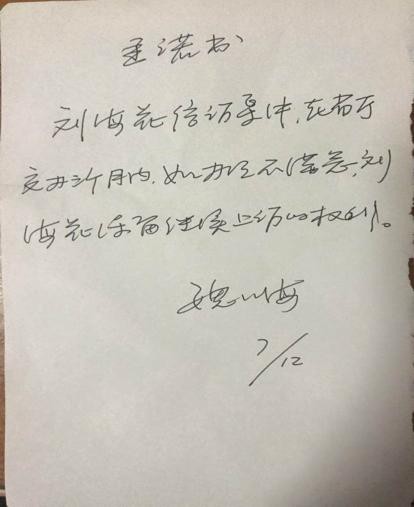 承诺书
刘海花信访案件,在省厅
交办三个月内,如办理不满意,刘
海花保留继续上访的权利。
7/12